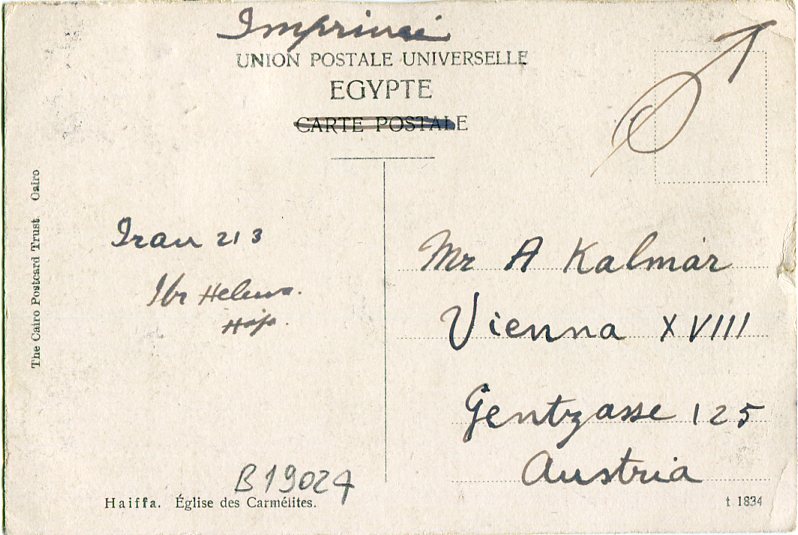 Imprimé
UNION POSTALE UNIVERSELLE
EGYPTE
CARTE POSTALE
The Cairo Postcard Trust Cairo
213
Mr A Kalmár
Vienna XVIII
Gentzgasse 125
Austria
B19027
Haiffa. Église des Carmélites.
t 1834